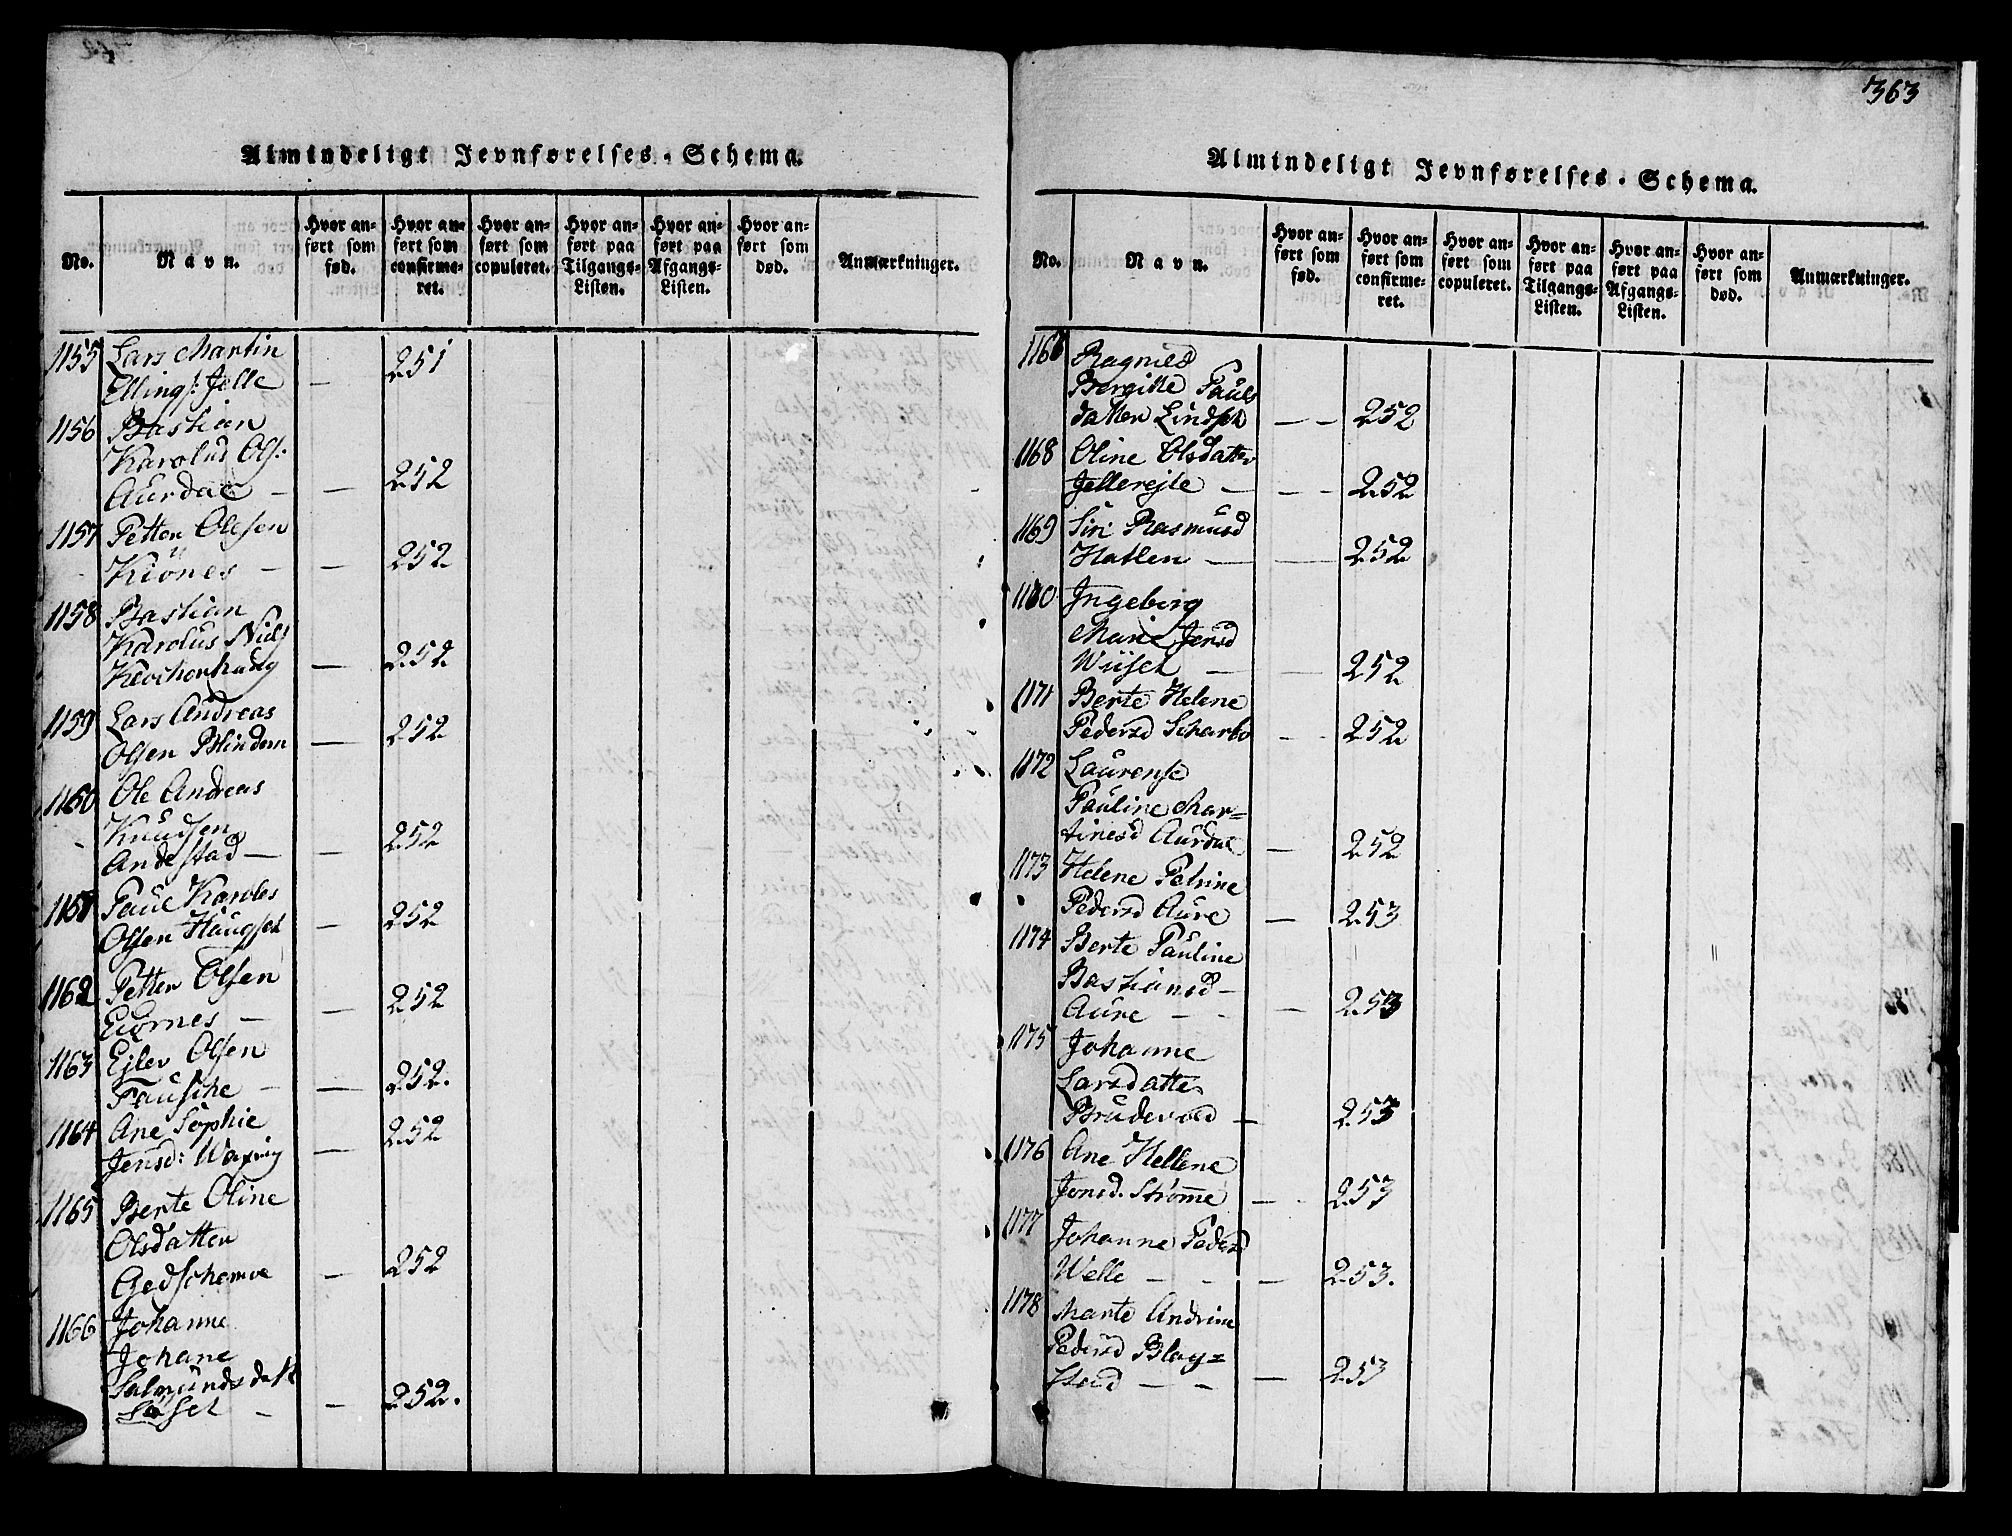 Almindeligt Jevnførelses-Schema.
No.
Navn.
Hvor anført som fød.
Hvor anført som confirmeret.
Hvor anført som copuleret.
Hvor anført paa Tilgangs-Listen.
Hvor anført paa Afgangs-Listen.
Hvor anført som død.
Anmærkninger.
1155 Lars Martin
Ellings: Jelle — 251
1156 Bastian
Karolus Ols:
Aurdal — — 252
1157 Petter Olesen
Kiönes — — 252.
1158 Bastian
Karolus Niels
— 252
1159 Lars Andreas
Olsen Blindem — 252
1160 Ole Andreas
Knudsen
Andestad — — 252
1161 Paul Karoles
Olsen Haugset — 252
1162 Petter Olsen
Eidrnes — — 252
1163 Ejlev Olsen
Fausche — — 252.
1164 Ane Sophie
Jensd: — 252
1165 Berte Oline
Olsdatter
— 252
1166 Johanne
Johane
Salmundsdatt
— — 252.
363
Almindeligt Jevnførelses-Schema.
No.
Navn.
Hvor anført som fød.
Hvor anført som confirmeret.
Hvor anført som copuleret.
Hvor anført paa Tilgangs-Listen.
Hvor anført paa Afgangs-Listen.
Hvor anført som død.
Anmærkninger.
1167 Ragnild
Bergitte Pauls
datter Lindset — — 252
1168 Oline Olsdatter
Jellerejte — — — 252
1169 Siri Rasmusd
Hatlen — — 252
1170 Ingeborg
Marie Jensd
Wiiset — — 252
1171 Berte Helene
Pedersd Scharbo — — 252
1172 Laurense
Pauline Mar=
tinesd Aurdal — 252
1173 Helene Petrine
Pedersd Aure — 253
1174 Berte Pauline
Bastiansd —
Aure — — — 253
1175 Johanne
Larsdatter
Brudevold — 253
1176 Ane Hellene
Jonsd. Strømme — 253
1177 Johanne Pedersd
Welle — — — 253.
1178 Marte Andrine
Pedersd Blag=
stad — — — 253